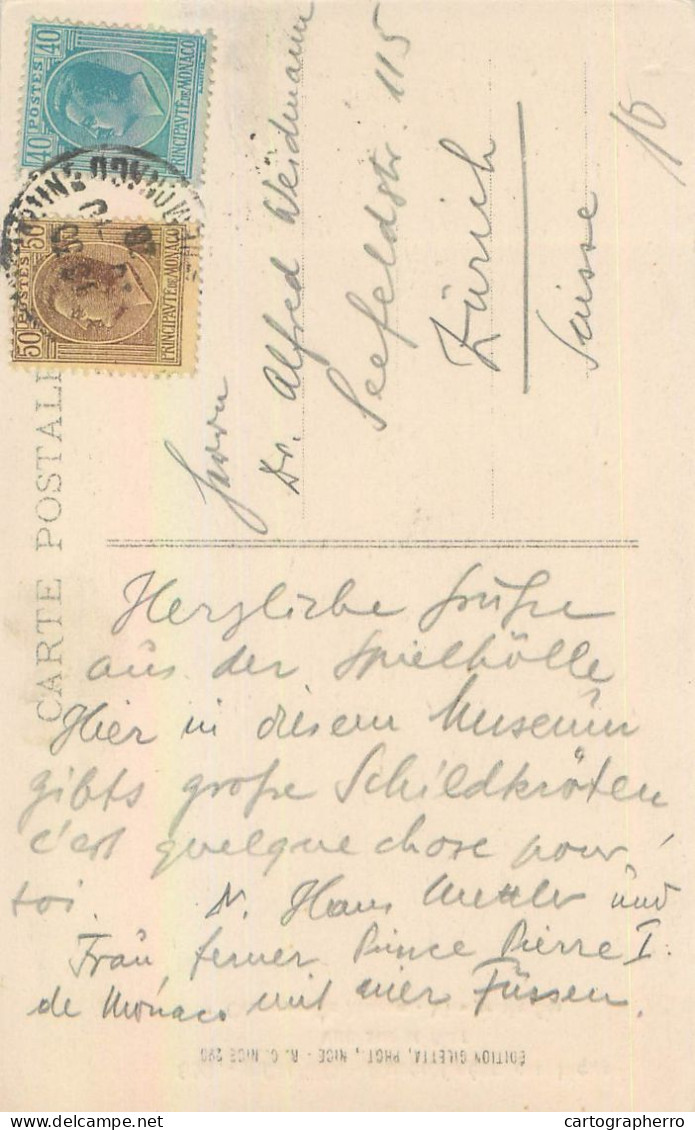 40 POSTES 40
PRINCIPAVTÉ DE MONACO
50 POSTES 50
PRINCIPAVTÉ DE MONACO
CARTE POSTALE
Herrn
Dr. Alfred Weidmann
Seefeldstr. 115
Zürich
Suisse
Herzliche Grüße
aus der Spielhölle
Hier in diesem Museum
gibts große Schildkröten
c'est quelque chose pour
toi.
Dr. Hans Mettler und
Frau, ferner Prince Pierre I.
de Monaco mit vier Füssen.
ÉDITION GILETTA, PHOT., NICE - R. C. NICE 290
cartographerro